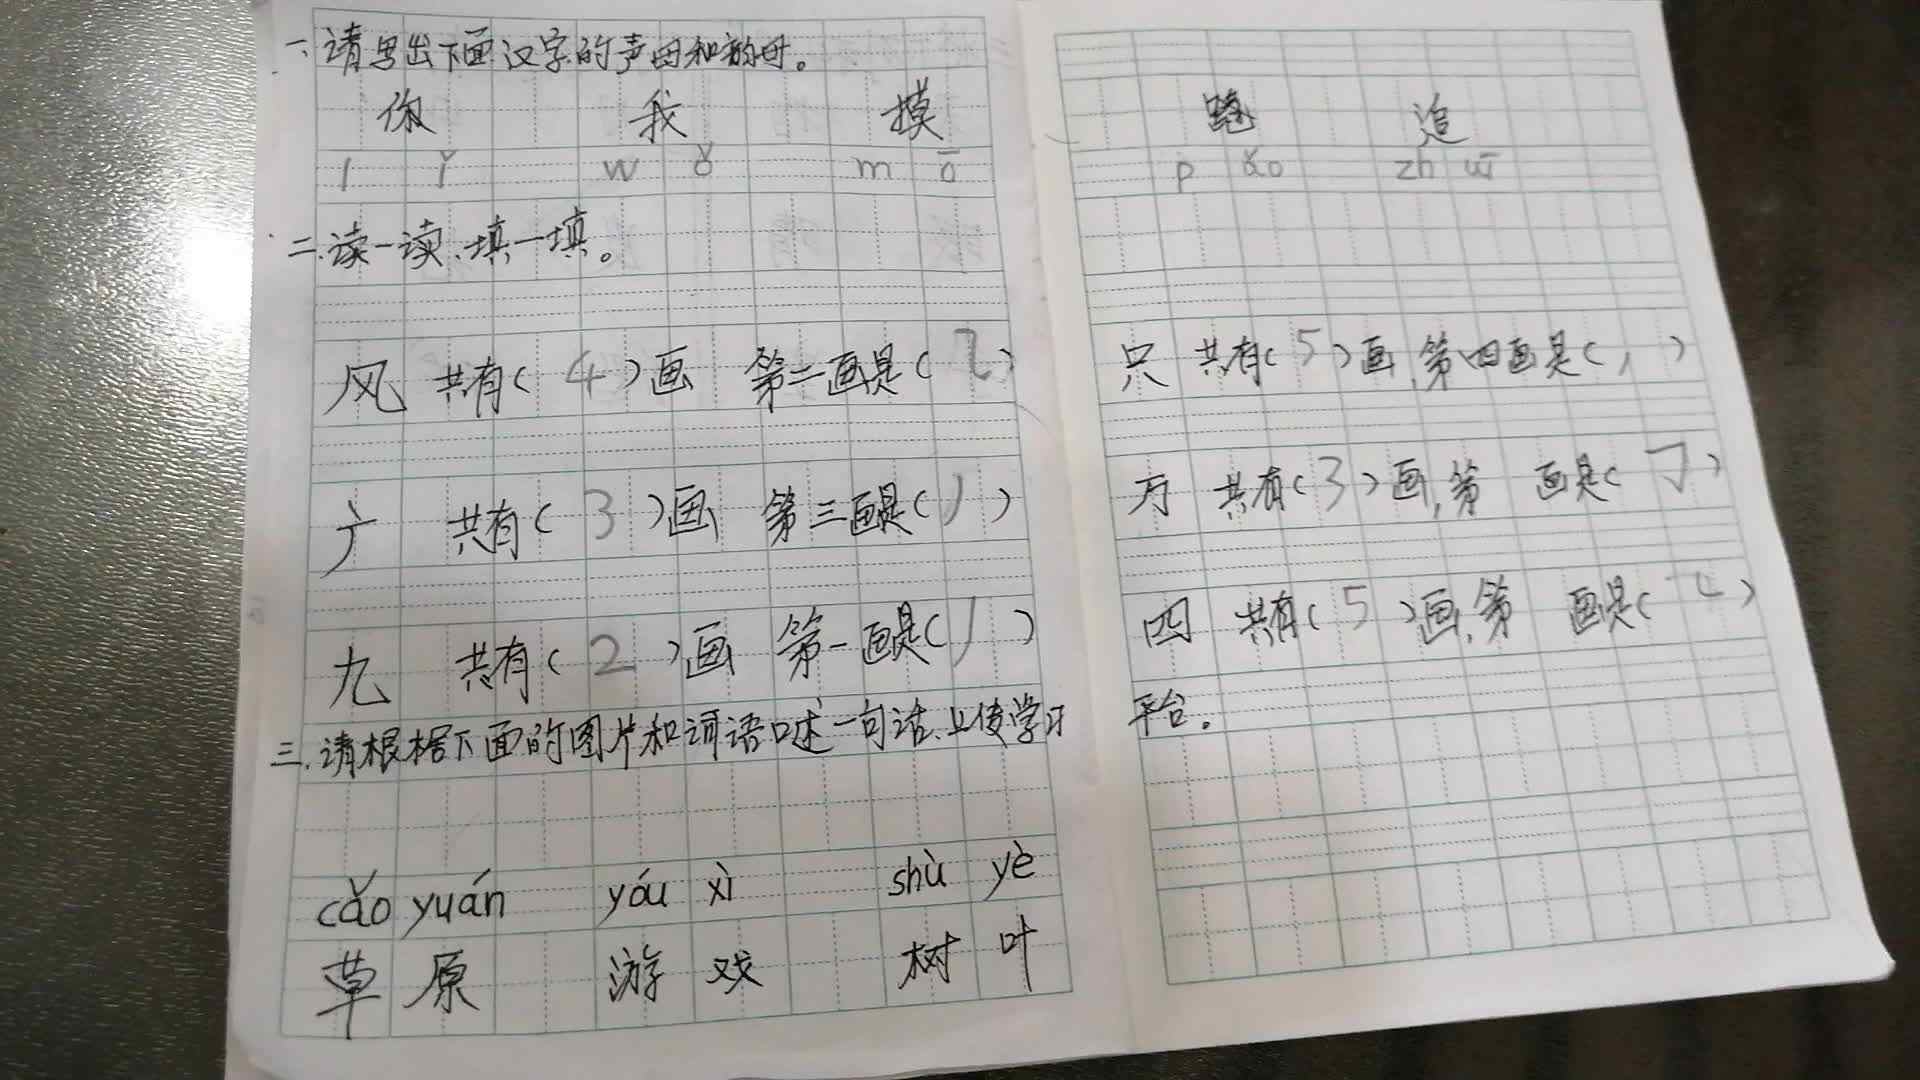 一、请写出下面汉字的声母和韵母。
你 我 摸
l ǐ w ǒ m ō
二、读一读、填一填。
风 共有( 4 )画 第二画是( ㇈ )
广 共有( 3 )画 第三画是( 丿 )
九 共有( 2 )画 第一画是( 丿 )
三、请根据下面的图片和词语口述一句话、上传学习
cǎo yuán yóu xì shù yè
草原 游戏 树叶
跑 追
p ǎo zh uī
只 共有( 5 )画,第四画是( 丿 )
万 共有( 3 )画,第 画是( ㇆ )
四 共有( 5 )画,第 画是( )
平台。